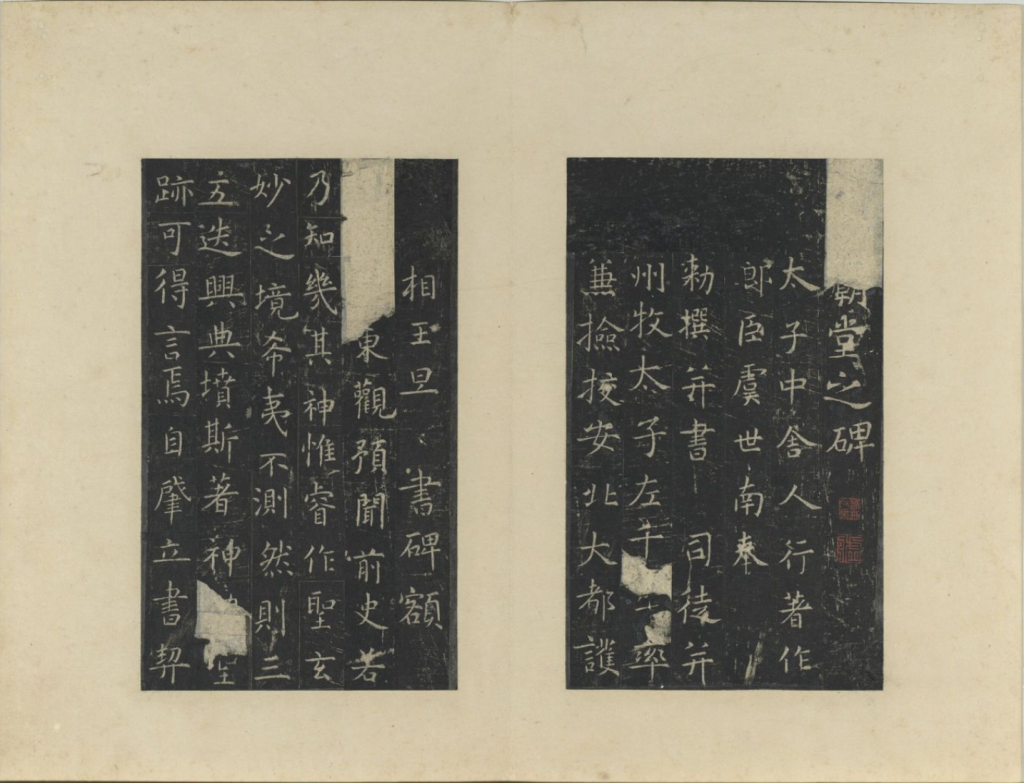 廟堂之碑
太子中舍人行著作
郎臣虞世南奉
勑撰并書 司徒并
州牧太子左千率
兼撿挍安北大都護
相王旦書碑額
東觀預聞前史若
乃知幾其神惟睿作聖玄
妙之境希夷不測然則三
五迭興典墳斯著神聖
跡可得言焉自肇立書契